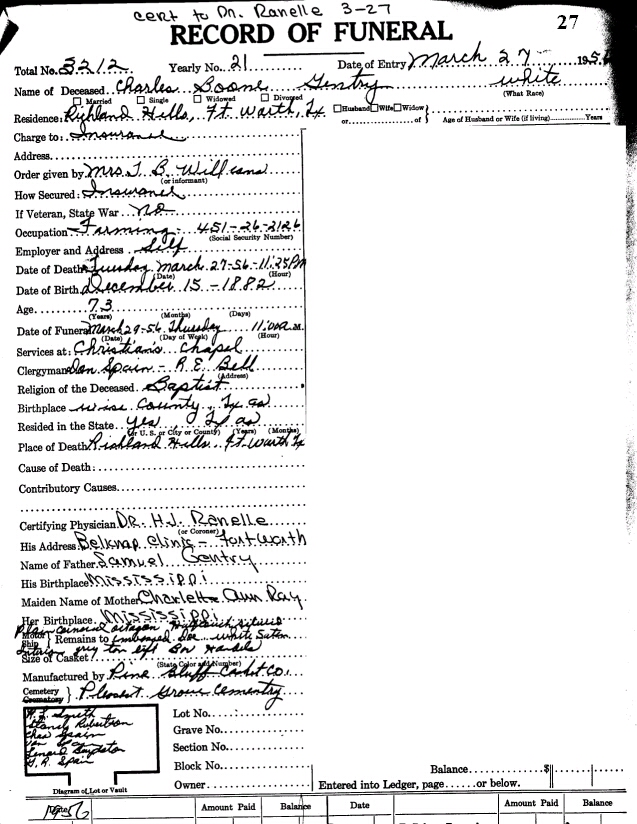 cert to Dr. Ranelle 3-27
RECORD OF FUNERAL 27
Total No. 3212 Yearly No. 21 Date of Entry March 27 1956
Name of Deceased Charles Boone Gentry white
☐ Married ☐ Single ☐ Widowed ☐ Divorced (What Race)
Residence: Richland Hills, Ft. Worth, Tx ☐Husband☐Wife☐Widow
or of Age of Husband or Wife (if living) Years
Charge to: Insurance
Address
Order given by Mrs. J. B. Williams
(or informant)
How Secured: Insurance
If Veteran, State War No
Occupation Farming 451-26-2126
(Social Security Number)
Employer and Address Self
Date of Death Tuesday March 27-56-11:25PM
(Date) (Hour)
Date of Birth December 15-1882
Age 73
(Years) (Months) (Days)
Date of Funeral March 29-56 Thursday 11:00 A.M.
(Date) (Day of Week) (Hour)
Services at: Christian's Chapel
Clergyman Dan Spain - R.E. Bell
(Address)
Religion of the Deceased Baptist
Birthplace Wise County, Texas
Resided in the State Yes Texas
(or U. S. or City or County) (Years) (Months)
Place of Death Richland Hills Ft Worth Tx
Cause of Death:
Contributory Causes
Certifying Physician DR. H.J. Ranelle
(or Coroner)
His Address Belknap Clinic - Fort Worth
Name of Father Samuel Gentry
His Birthplace Mississippi
Maiden Name of Mother Charlette Ann Ray
Her Birthplace Mississippi
Plain octagon
Motor Ship } Remains to embossed Doe white Satin
Interior grey
Size of Casket
(State Color and Number)
Manufactured by Pine Bluff Casket Co.
Cemetery Crematory } Pleasant Grove Cemetery
Smith
Robertson
Spain
G. R. Spain
Diagram of Lot or Vault
Lot No.
Grave No.
Section No.
Block No. Balance $
Owner Entered into Ledger, page or below.
Amount Paid Balance Date Amount Paid Balance